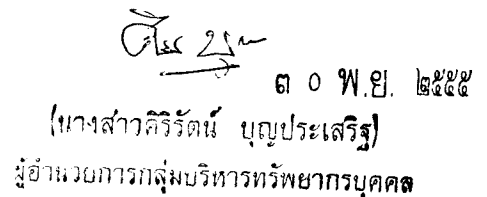 ๓ ๐ พ.ย. ๒๕๕๕
(นางสาวศิริรัตน์ บุญประเสริฐ)
ผู้อำนวยการกลุ่มบริหารทรัพยากรบุคคล